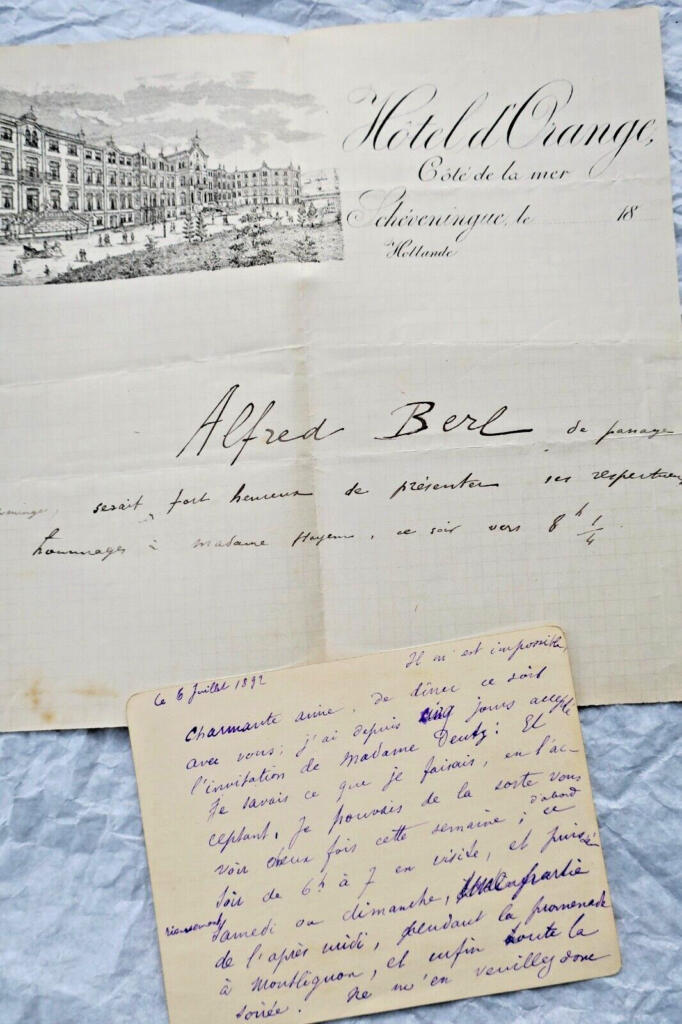 Hôtel d'Orange,
Côté de la mer
Schéveningue, le 18
Hollande
Alfred Berl de passage
serait fort heureux de présenter ses respectueux
hommages à Madame Hayem, ce soir vers 8 h 1/4
Le 6 Juillet 1892
Il m'est impossible,
charmante amie, de dîner ce soir
avec vous; j'ai depuis cinq jours accepté
l'invitation de Madame Deutz! Et
je savais ce que je faisais, en l'ac-
ceptant. Je pouvais de la sorte vous
voir deux fois cette semaine; d'abord ce
soir de 6h à 7 en visite, et puis
Samedi ou dimanche, partie
de l'après midi, pendant la promenade
à Montlignon, et enfin toute la
soirée. Ne m'en veuillez donc